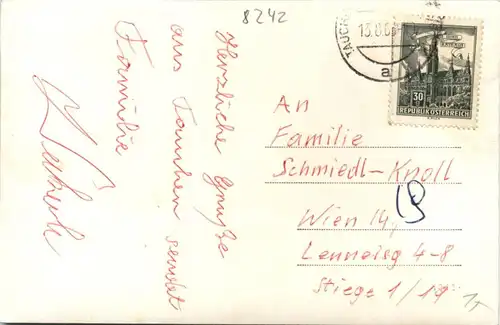 8242
Herzliche Grüße
aus Tauchen sendet
Familie
TAUCH
13.8.6
a
30
REPUBLIK ÖSTERREICH
An
Familie
Schmiedl-Knoll
Wien 14,
4-8
Stiege 1/19